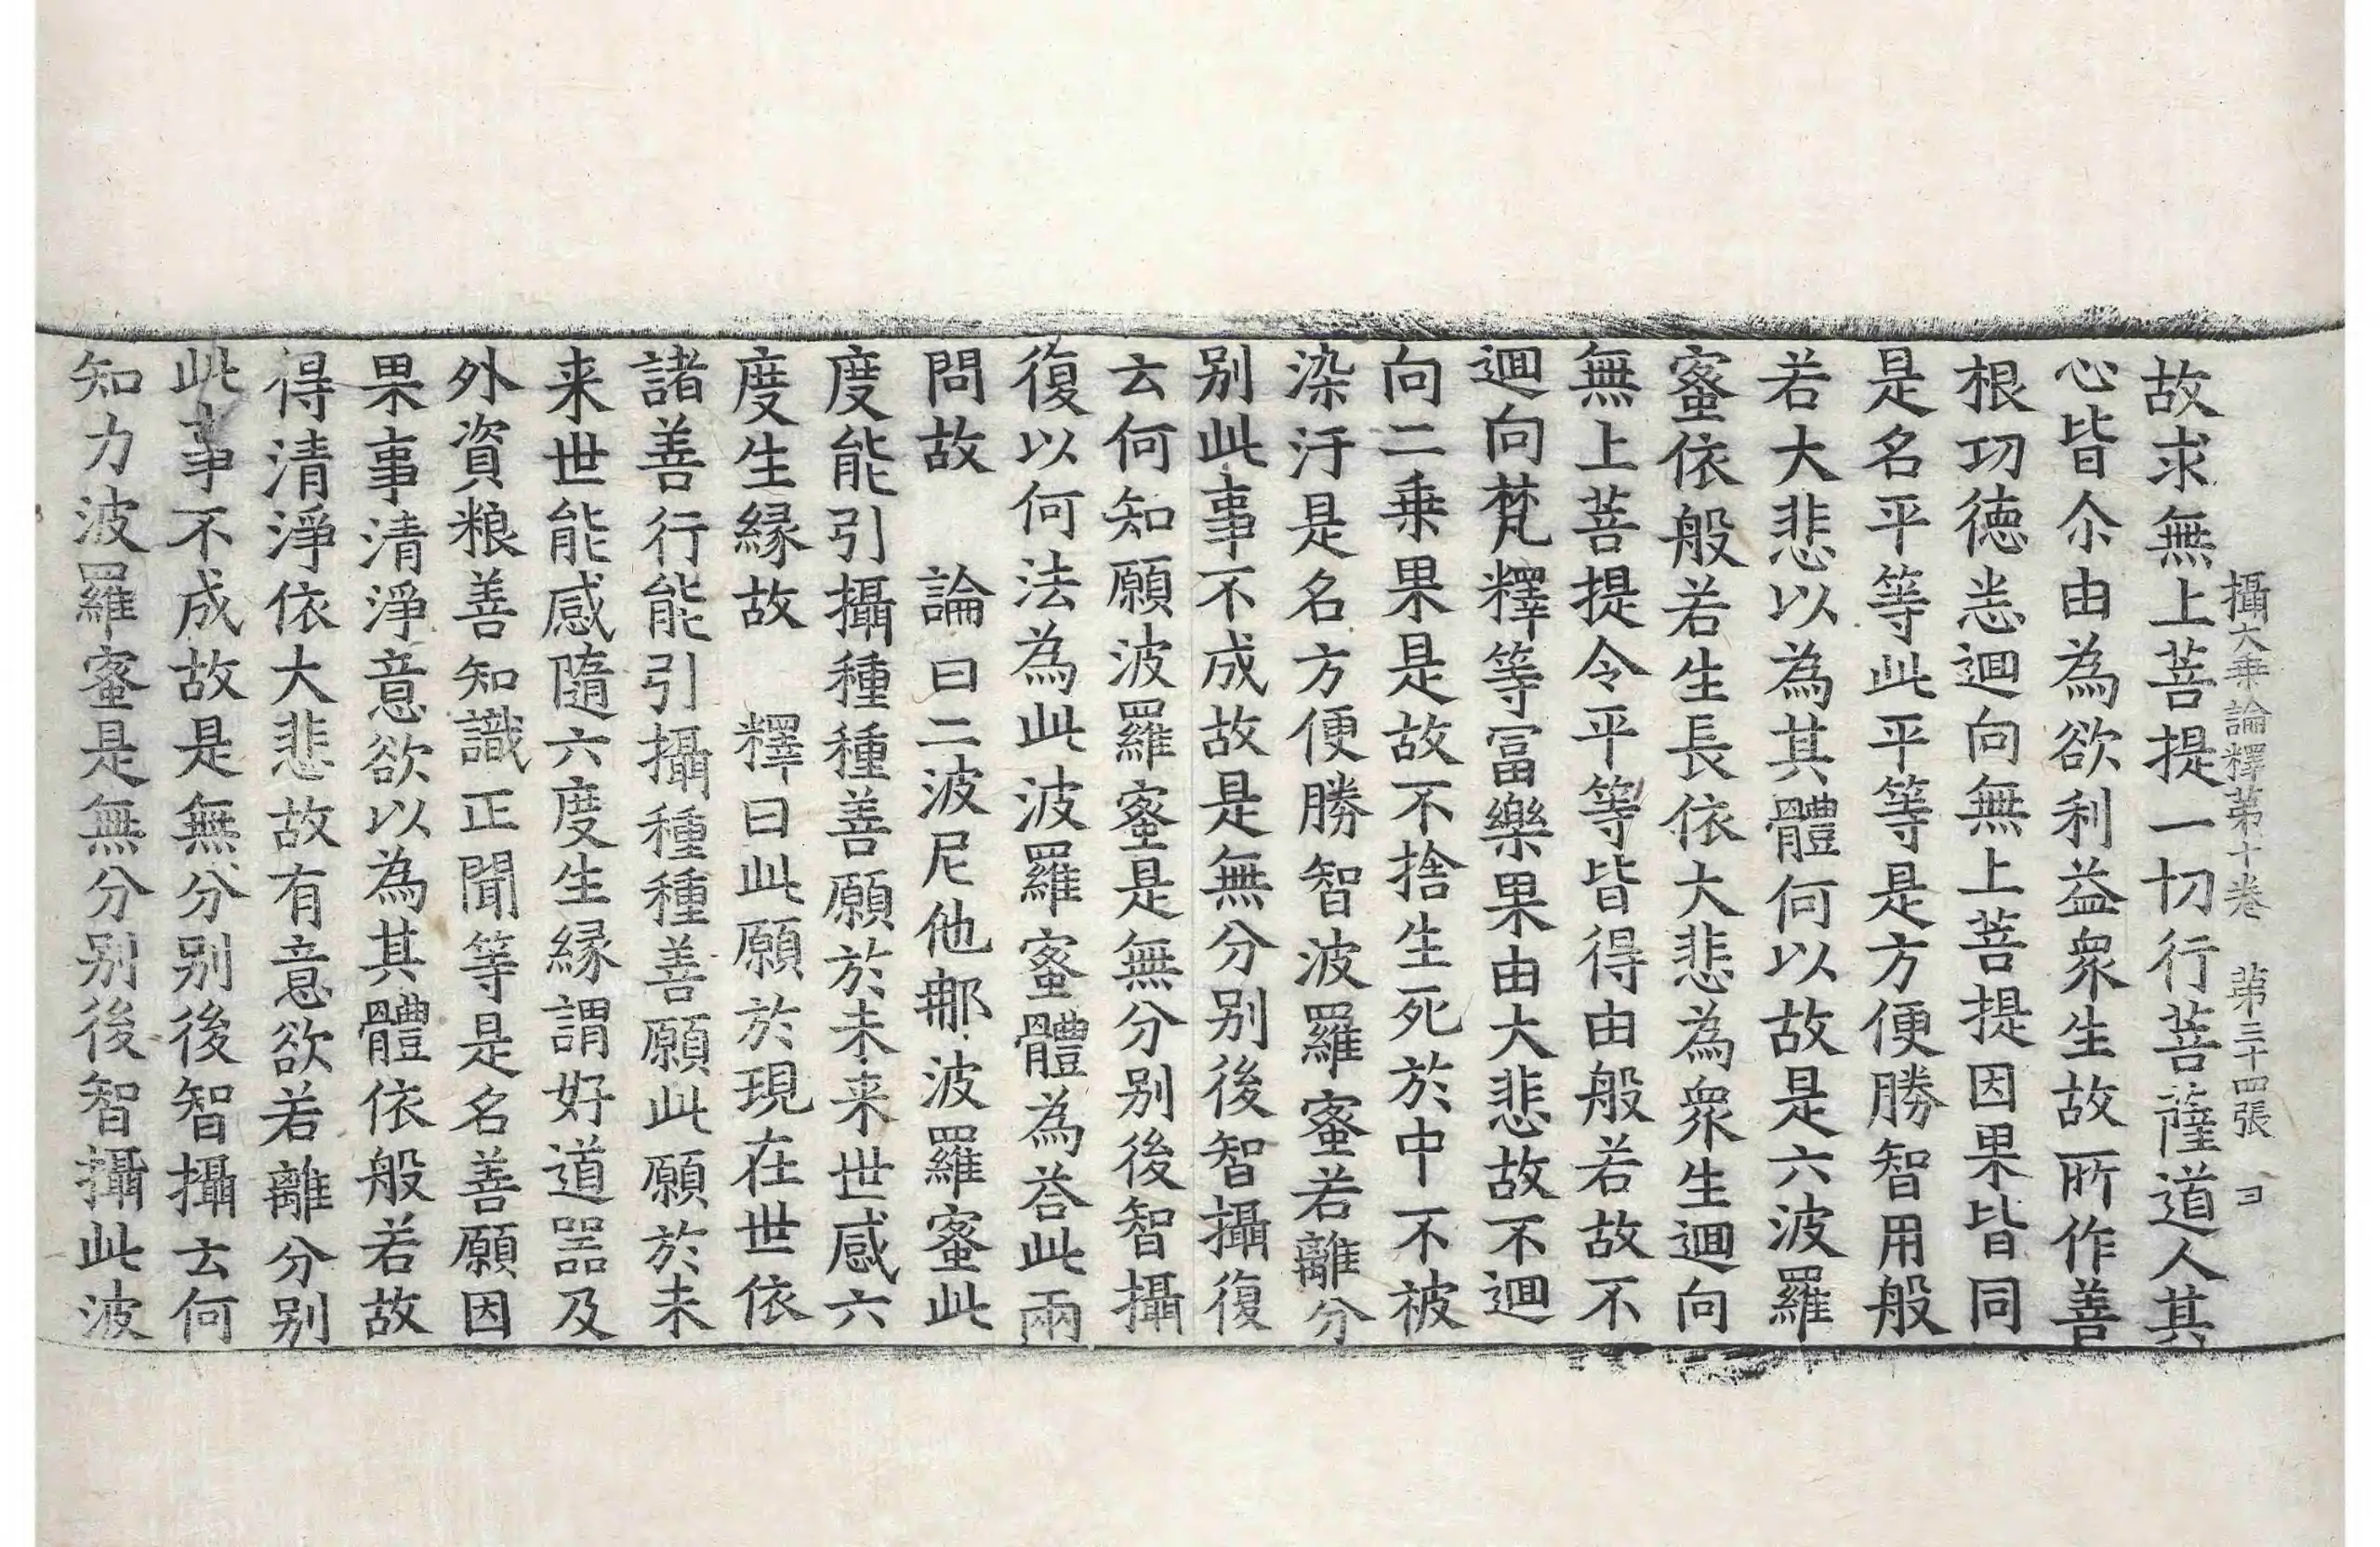 攝大乗論釋第十卷 第三十四張 ヨ
故求無上菩提一切行菩薩道人其
心皆尒由為欲利益衆生故所作善
根功徳悉迴向無上菩提因果皆同
是名平等此平等是方便勝智用般
若大悲以為其體何以故是六波羅
蜜依般若生長依大悲為衆生迴向
無上菩提令平等皆得由般若故不
迴向梵釋等冨樂果由大悲故不迴
向二乗果是故不捨生死於中不被
染汙是名方便勝智波羅蜜若離分
别此事不成故是無分别後智攝復
云何知願波羅蜜是無分别後智攝
復以何法為此波羅蜜體為荅此兩
問故 論曰二波尼他那波羅蜜此
度能引攝種種善願於未来世感六
度生縁故 釋曰此願於現在世依
諸善行能引攝種種善願此願於未
来世能感隨六度生縁謂好道噐及
外資粮善知識正聞等是名善願因
果事清淨意欲以為其體依般若故
得清淨依大悲故有意欲若離分别
此事不成故是無分别後智攝云何
知力波羅蜜是無分别後智攝此波